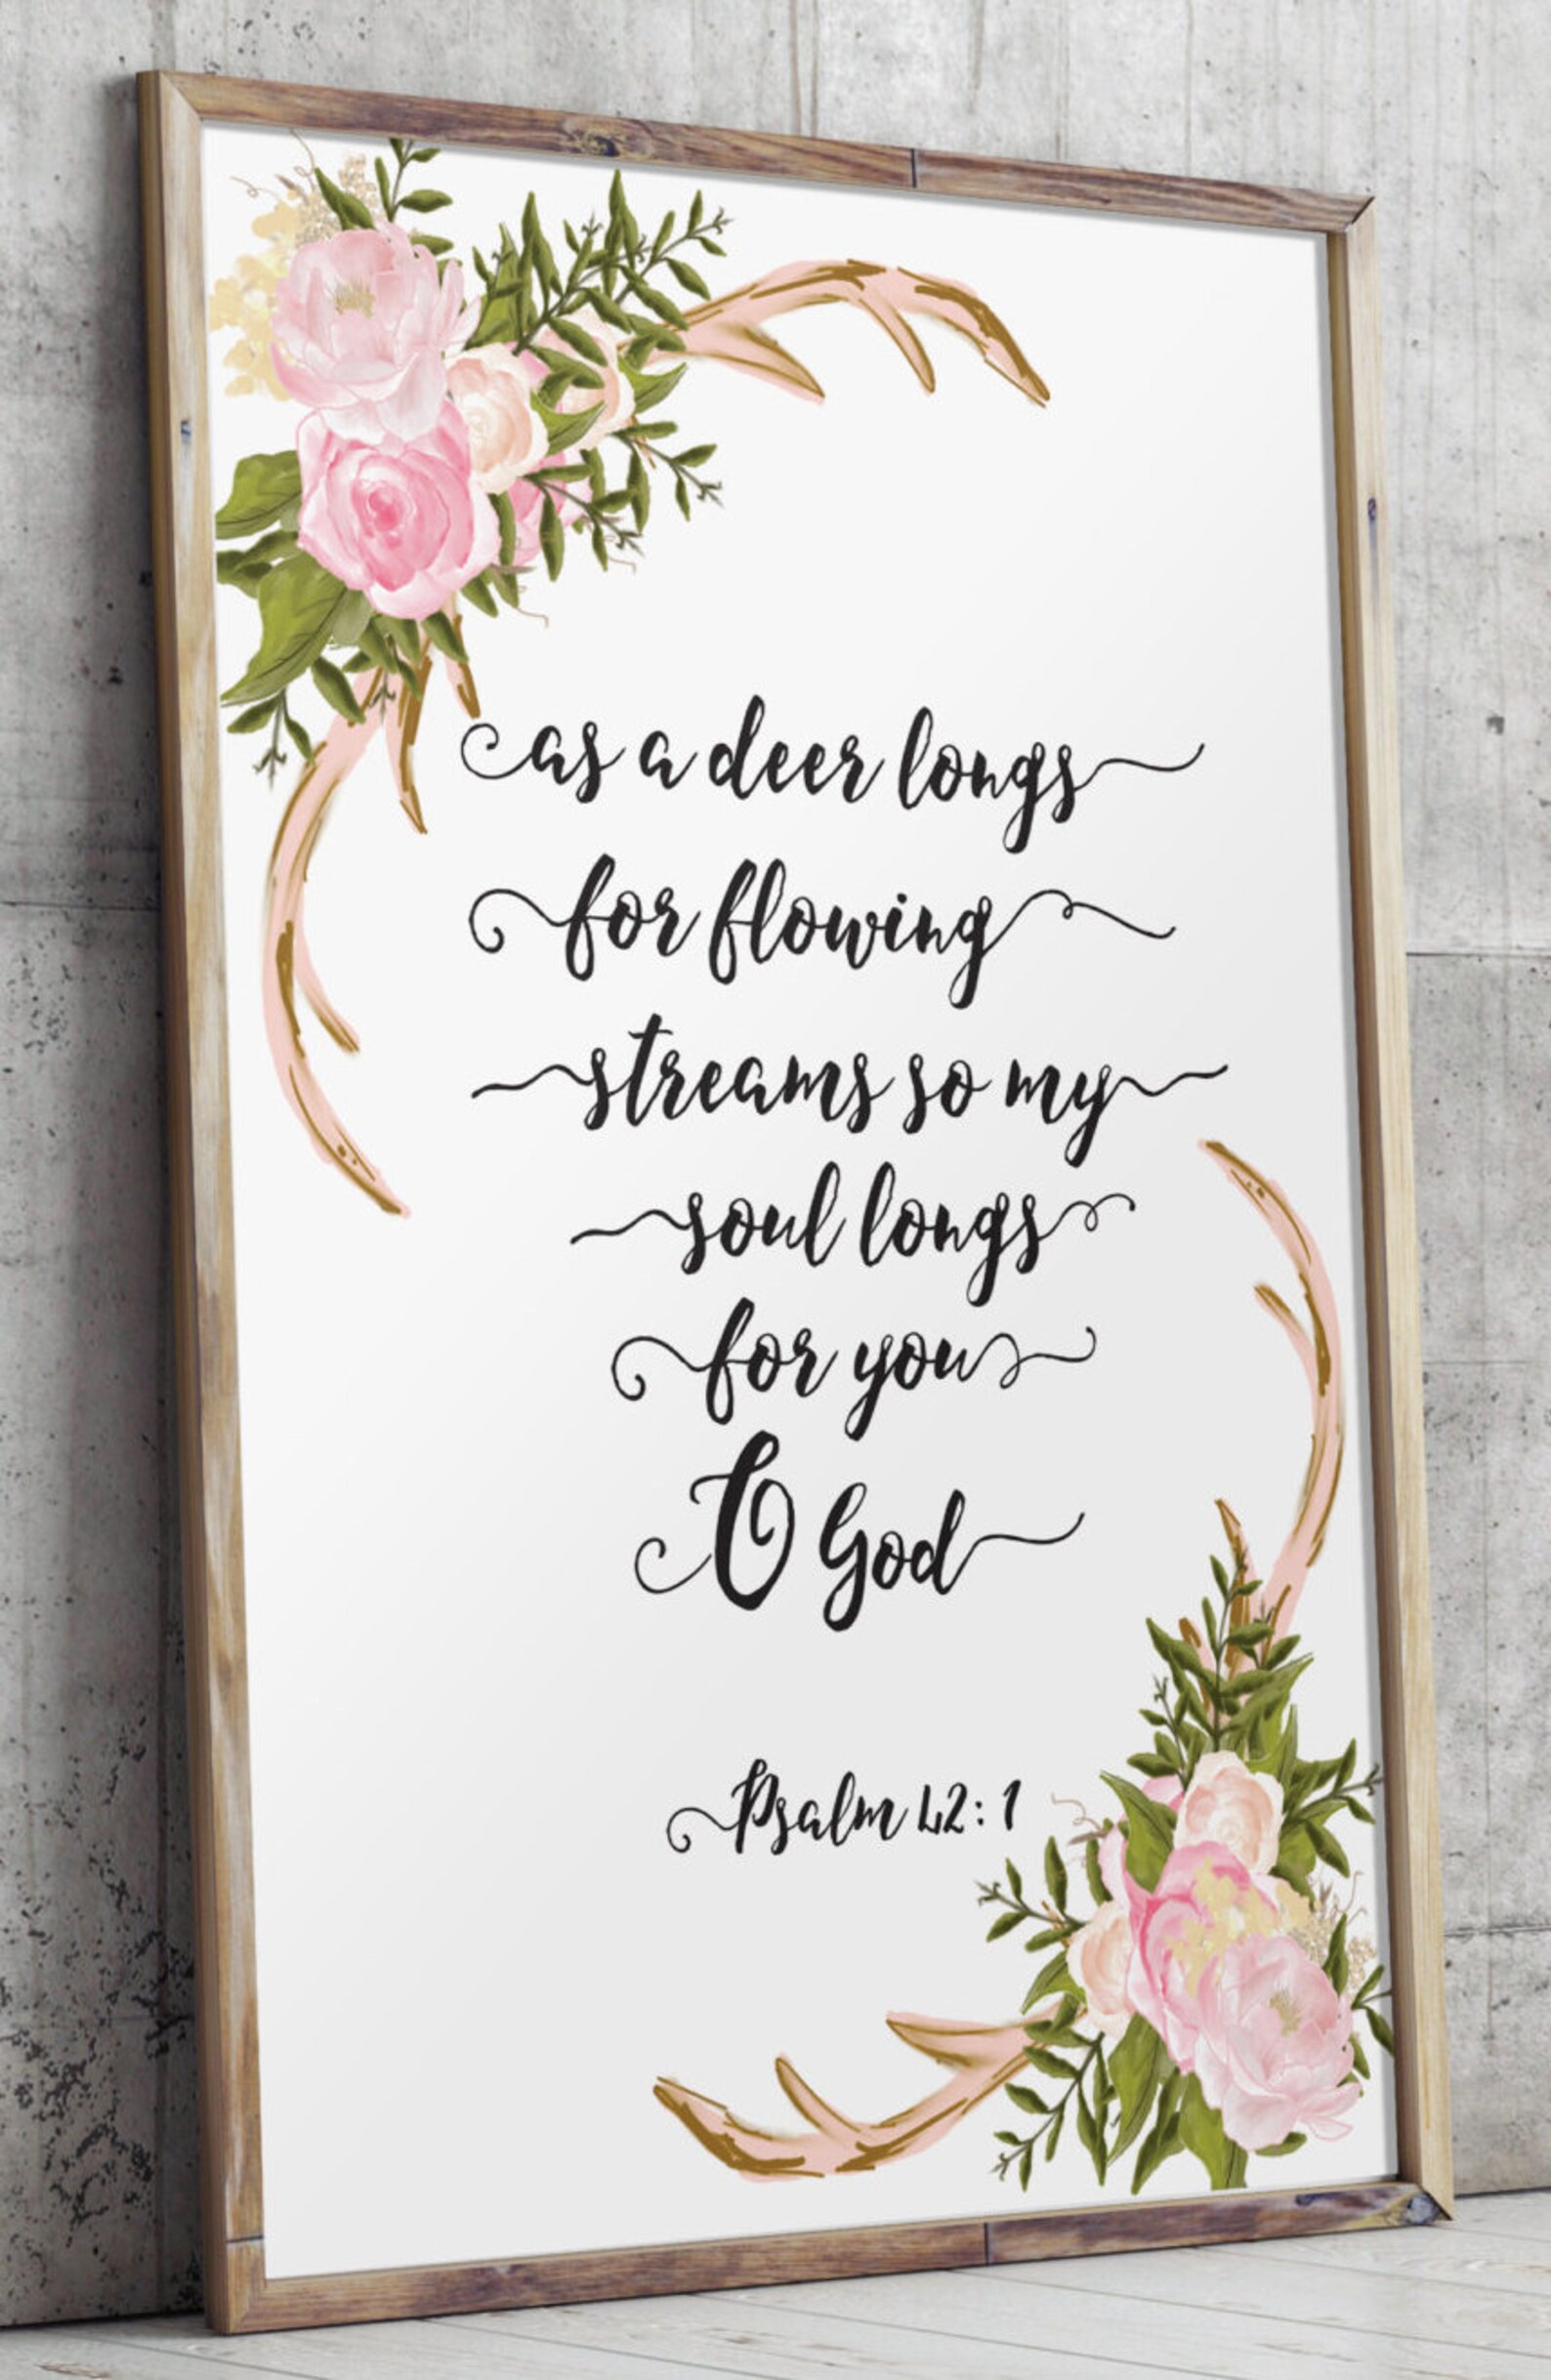 as a deer longs
for flowing
streams so my
soul longs
for you
O God
Psalm 42: 1